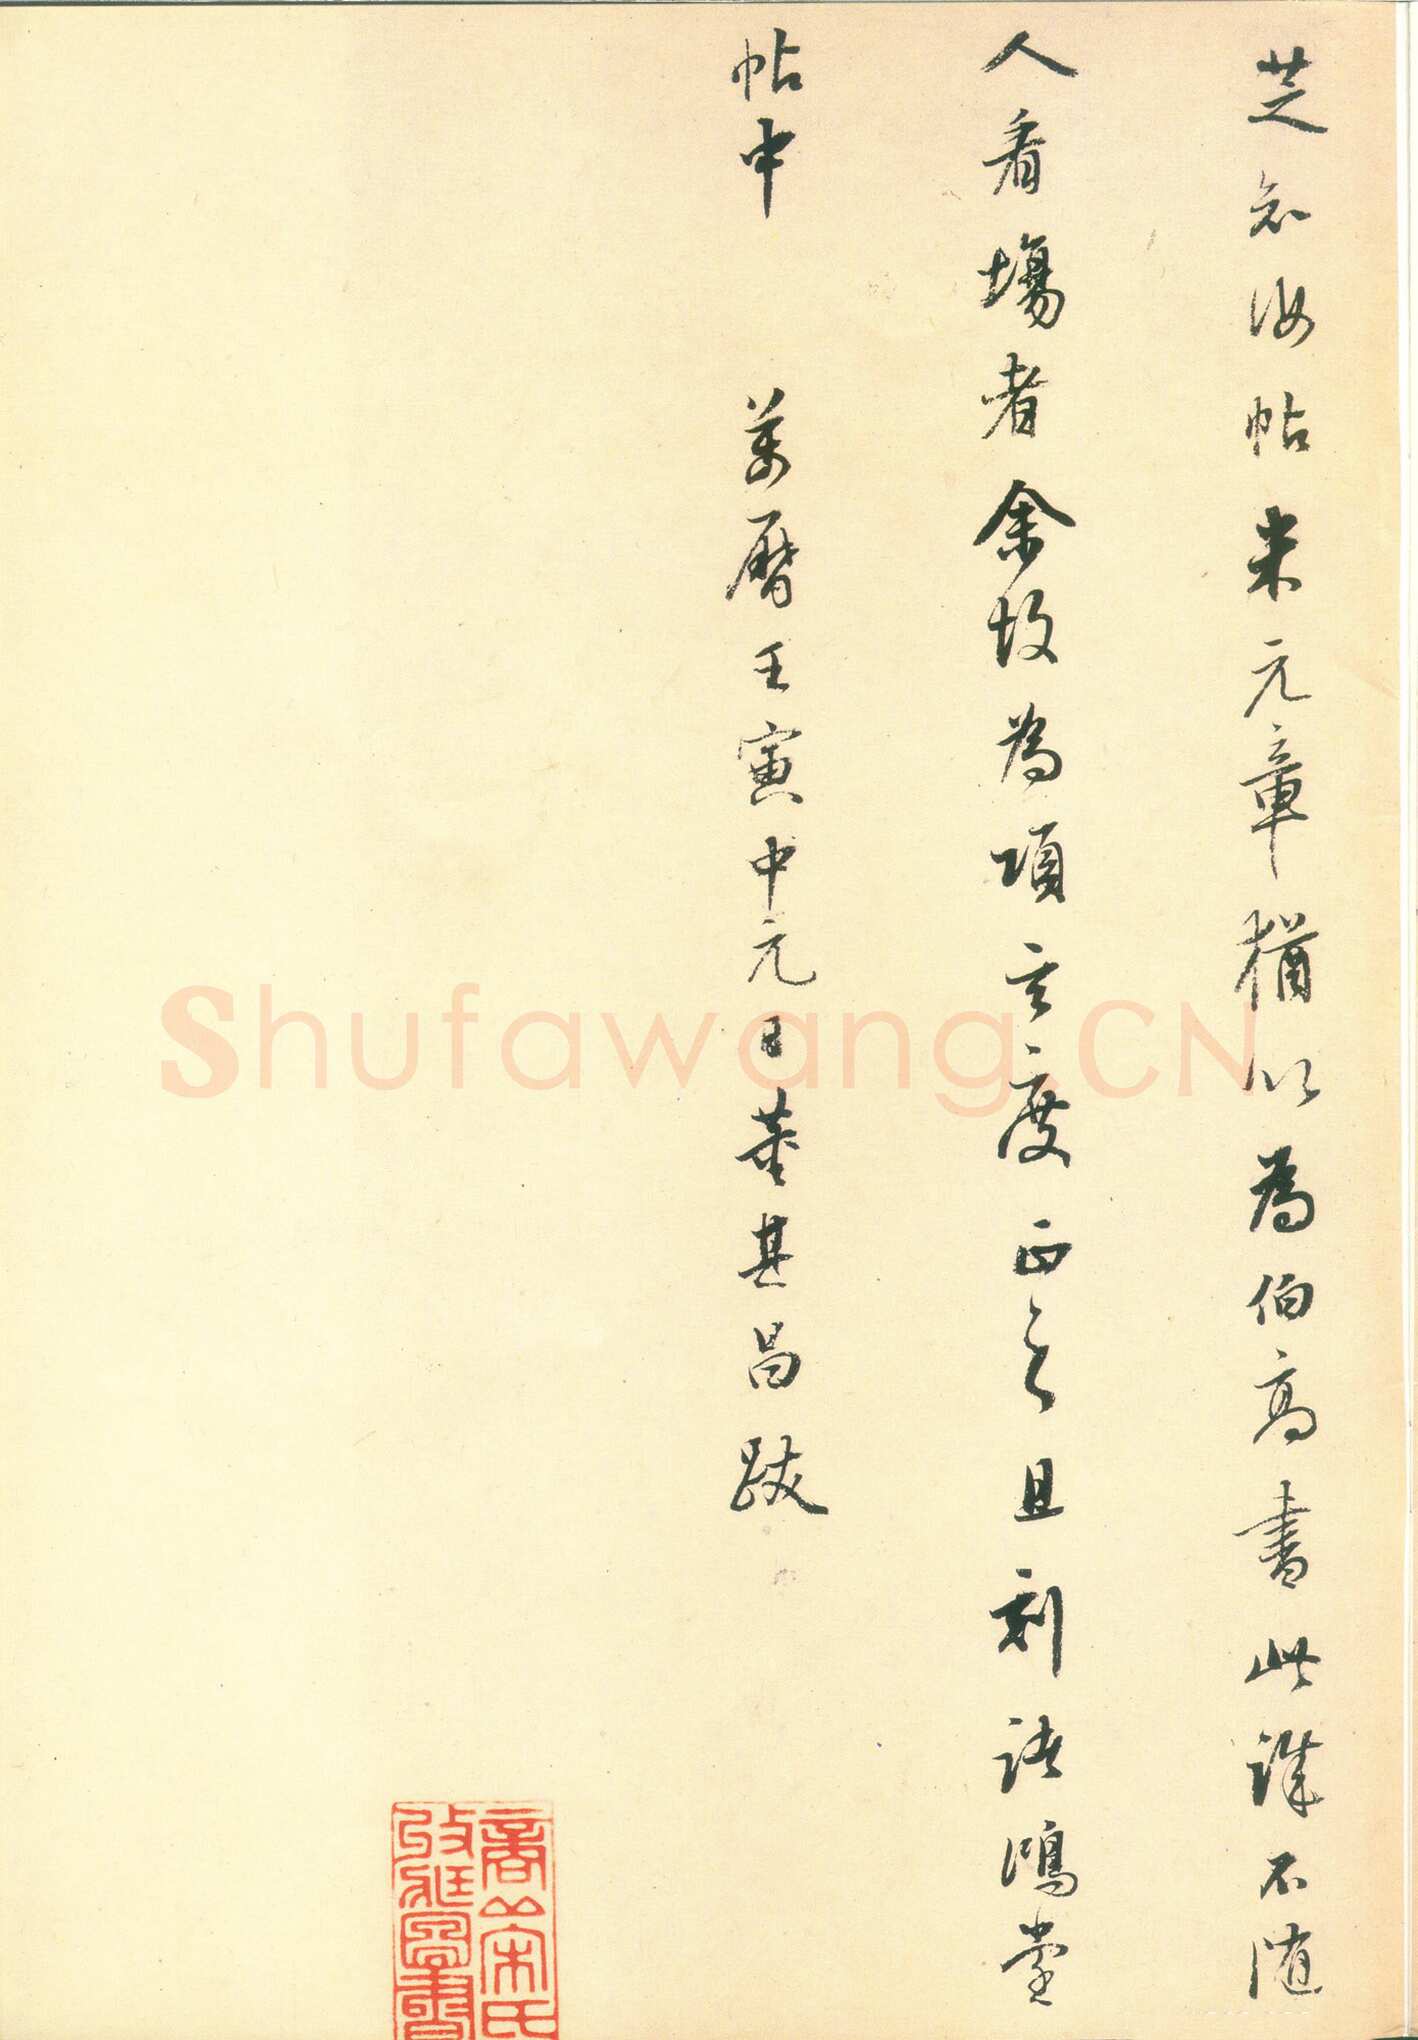 芝知汝帖米元章猶以為伯高書此誰不隨
人看場者余故為項玄度正之且刻諸鴻堂
帖中 萬曆壬寅中元日董其昌跋
Shufawang.CN
商丘宋氏
收藏圖書